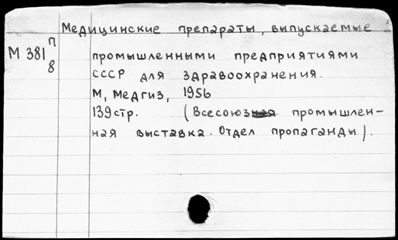 Медицинские препараты, выпускаемые
М 381 П/8
промышленными предприятиями
СССР для здравоохранения.
М, Медгиз, 1956
139 стр. (Всесоюзная промышлен-
ная выставка. Отдел пропаганды).